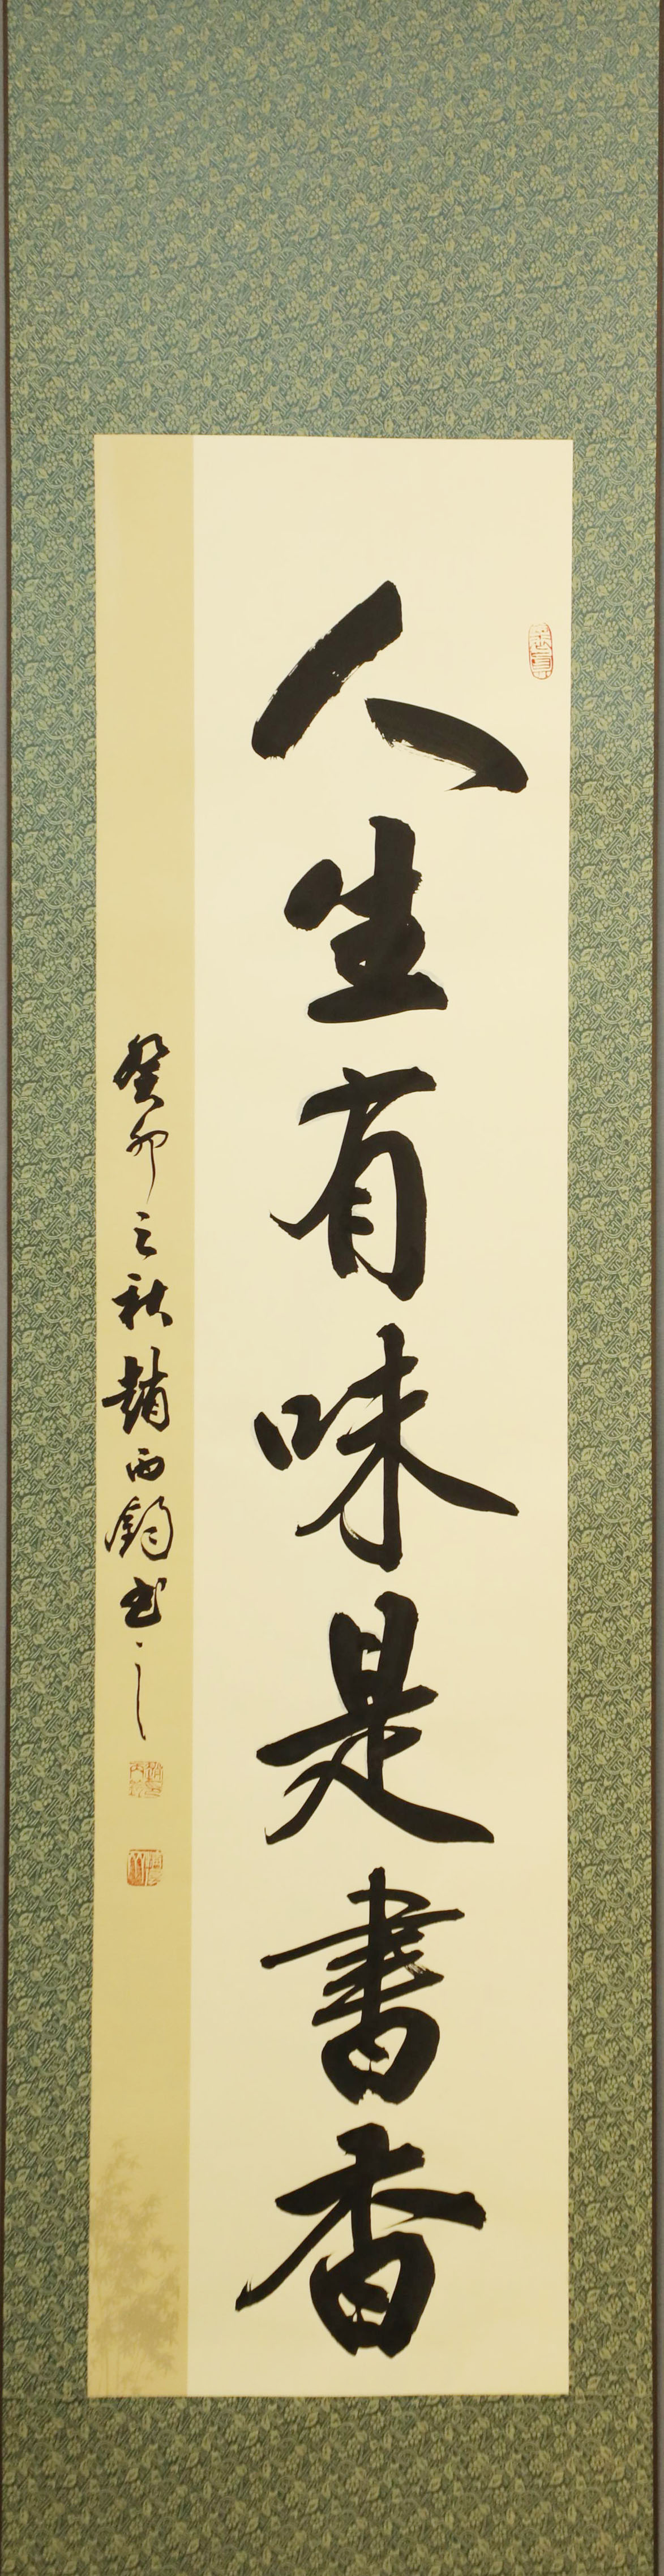 人生有味是書香
癸卯之秋趙丙鈞书之